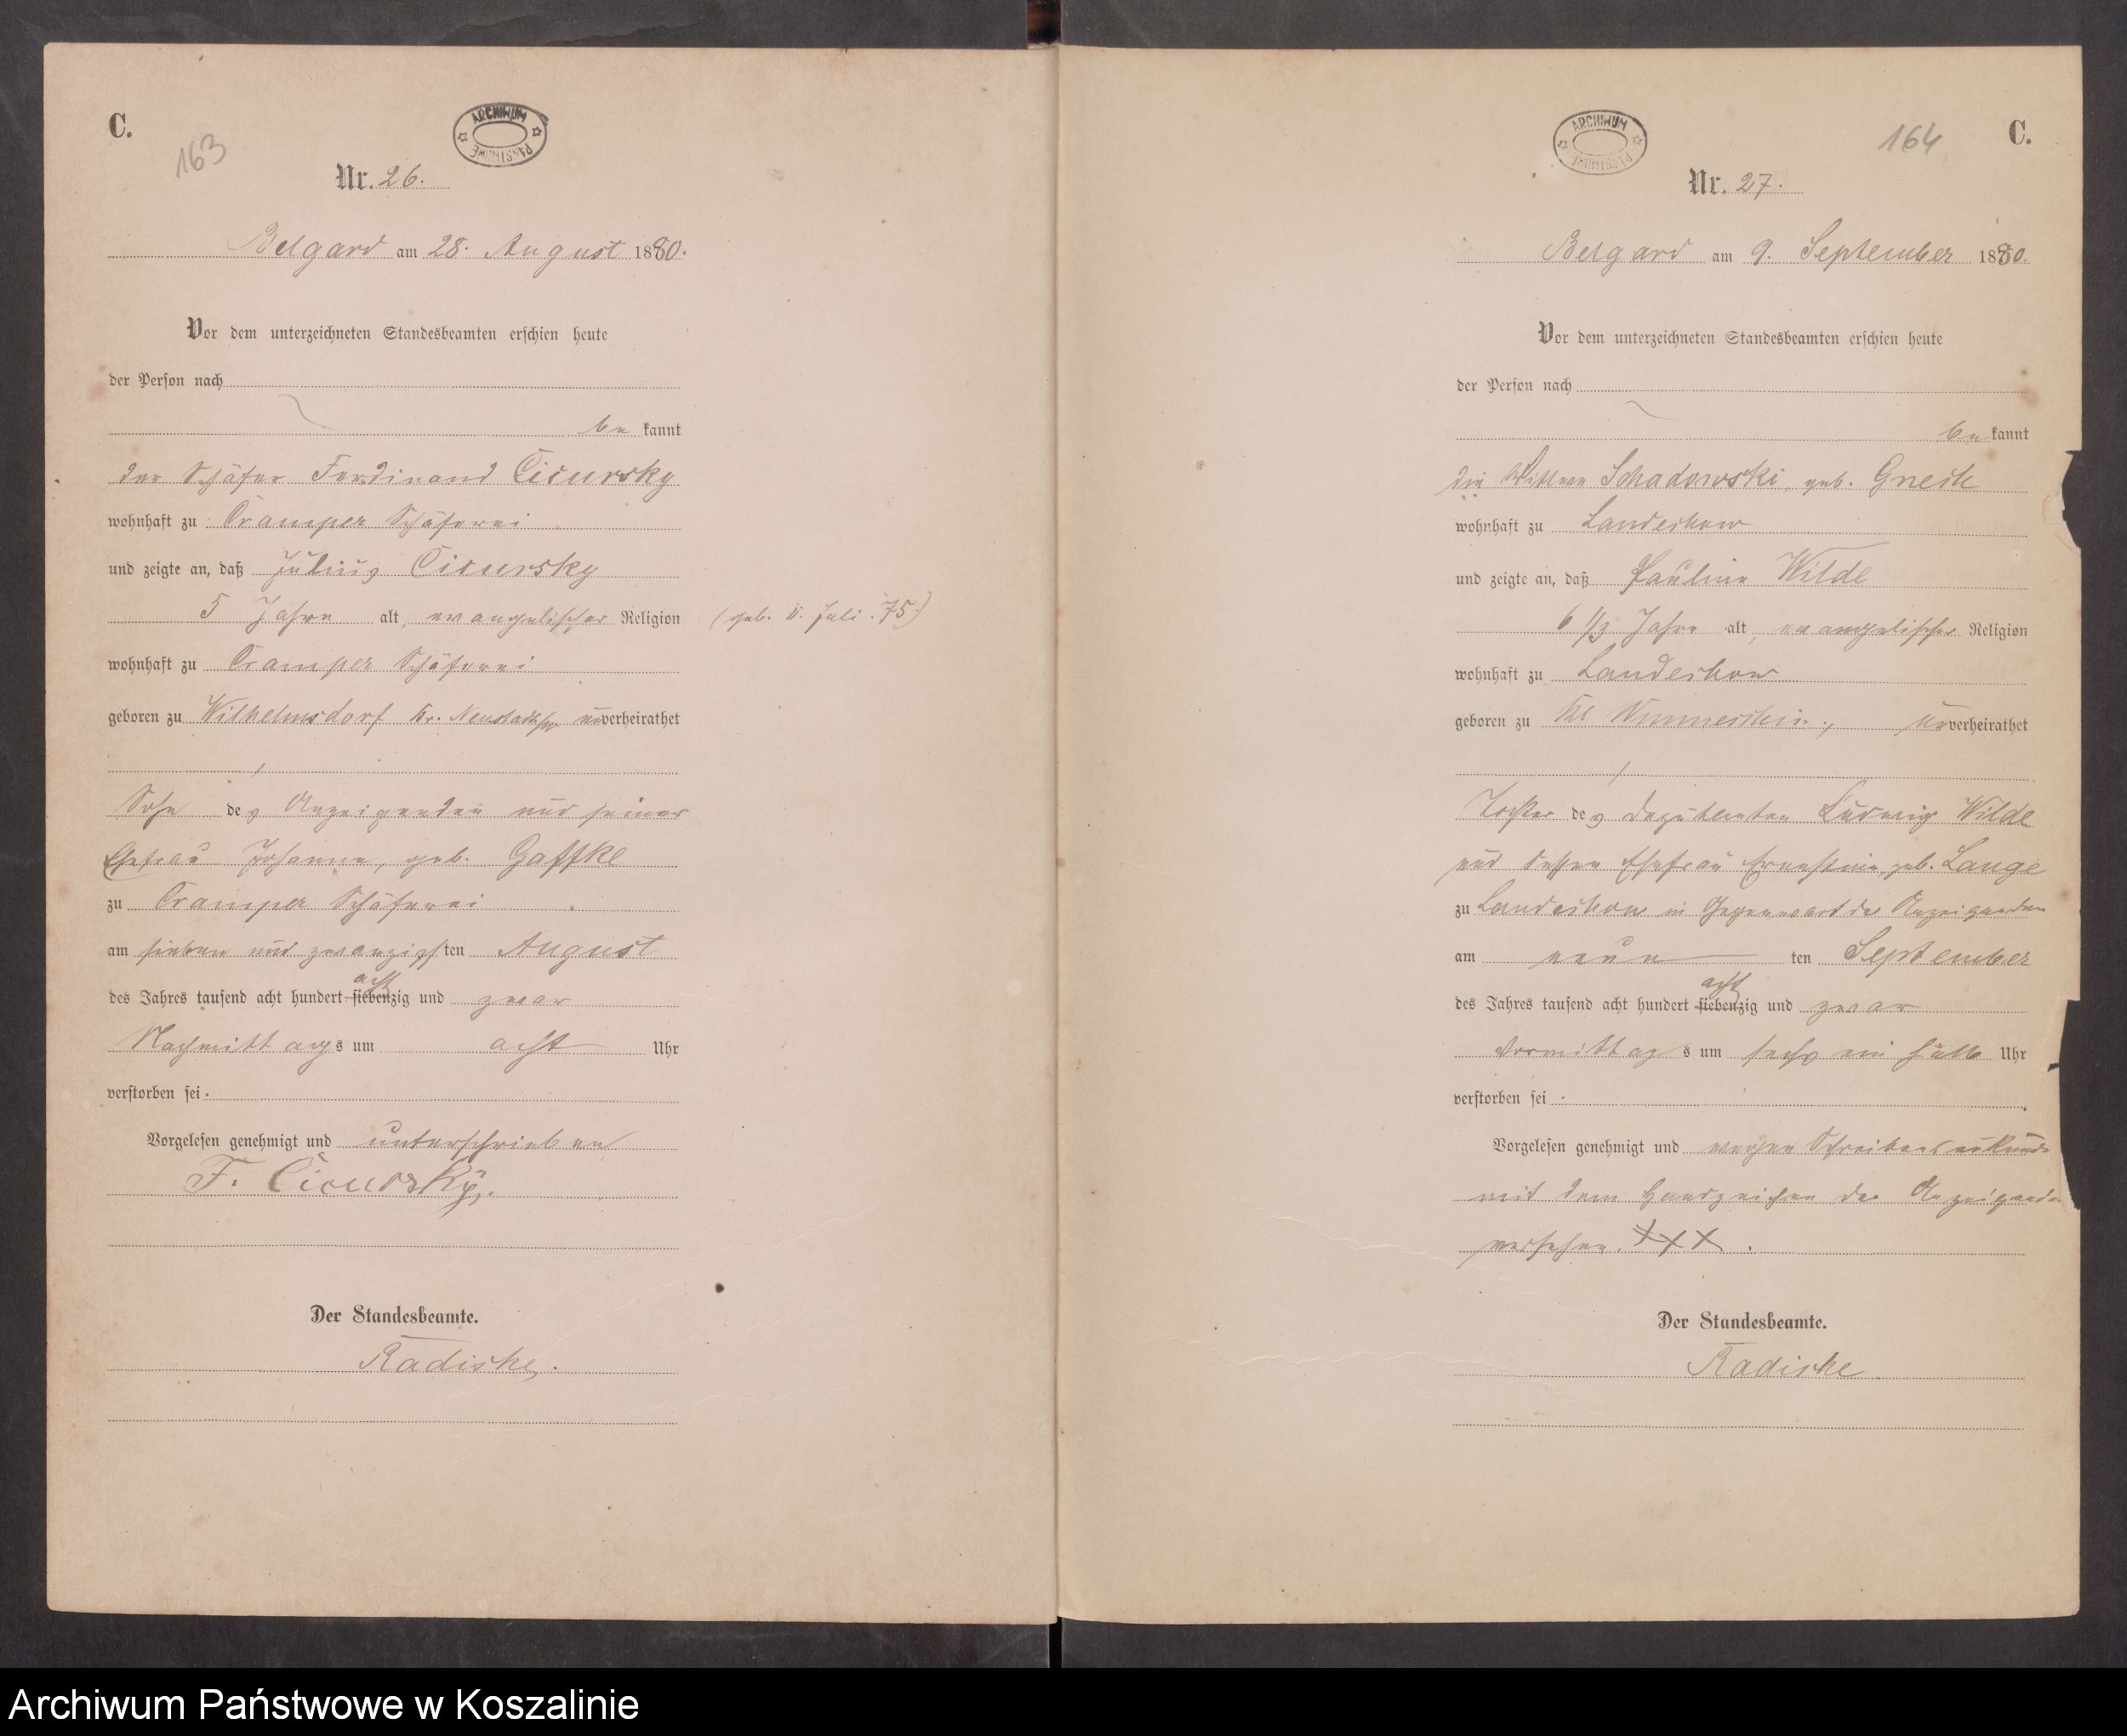 C.
163
ARCHIWUM PAŃSTWOWE
Nr. 26.
Belgard am 28. August 1880.
Vor dem unterzeichneten Standesbeamten erschien heute
der Person nach
bekannt
der Schäfer Ferdinand Cicursky
wohnhaft zu Cramper Schäferei
und zeigte an, daß Julius Cicursky
5 Jahre alt, evangelischer Religion (geb. 11. Juli 75.)
wohnhaft zu Cramper Schäferei
geboren zu Wilhelmsdorf Kr. Neustadt unverheirathet
Sohn des Anzeigenden und seiner
Ehefrau Johanne, geb. Gaffke
zu Cramper Schäferei
am sieben und zwanzigsten August
des Jahres tausend acht hundert siebenzig acht und zwar
Nachmittags um acht Uhr
verstorben sei.
Vorgelesen genehmigt und unterschrieben
F. Cicursky.
Der Standesbeamte.
Radiske.
164
C.
ARCHIWUM PAŃSTWOWE
Nr. 27.
Belgard am 9. September 1880.
Vor dem unterzeichneten Standesbeamten erschien heute
der Person nach
bekannt
die Wittwe Schadowski, geb.
wohnhaft zu Landechow
und zeigte an, daß Pauline Wilde
6 1/3 Jahre alt, evangelischer Religion
wohnhaft zu Landechow
geboren zu Kl unverheirathet
Tochter des Deputanten Ludwig Wilde
und dessen Ehefrau Ernestine, geb. Lange
zu Landechow in Gegenwart der Anzeigenden
am neun ten September
des Jahres tausend acht hundert siebenzig acht und zwar
Vormittags um sechs ein halb Uhr
verstorben sei.
Vorgelesen genehmigt und wegen Schreibensunkunde
mit dem Handzeichen der Anzeigenden
versehen. XXX.
Der Standesbeamte.
Radiske
Archiwum Państwowe w Koszalinie